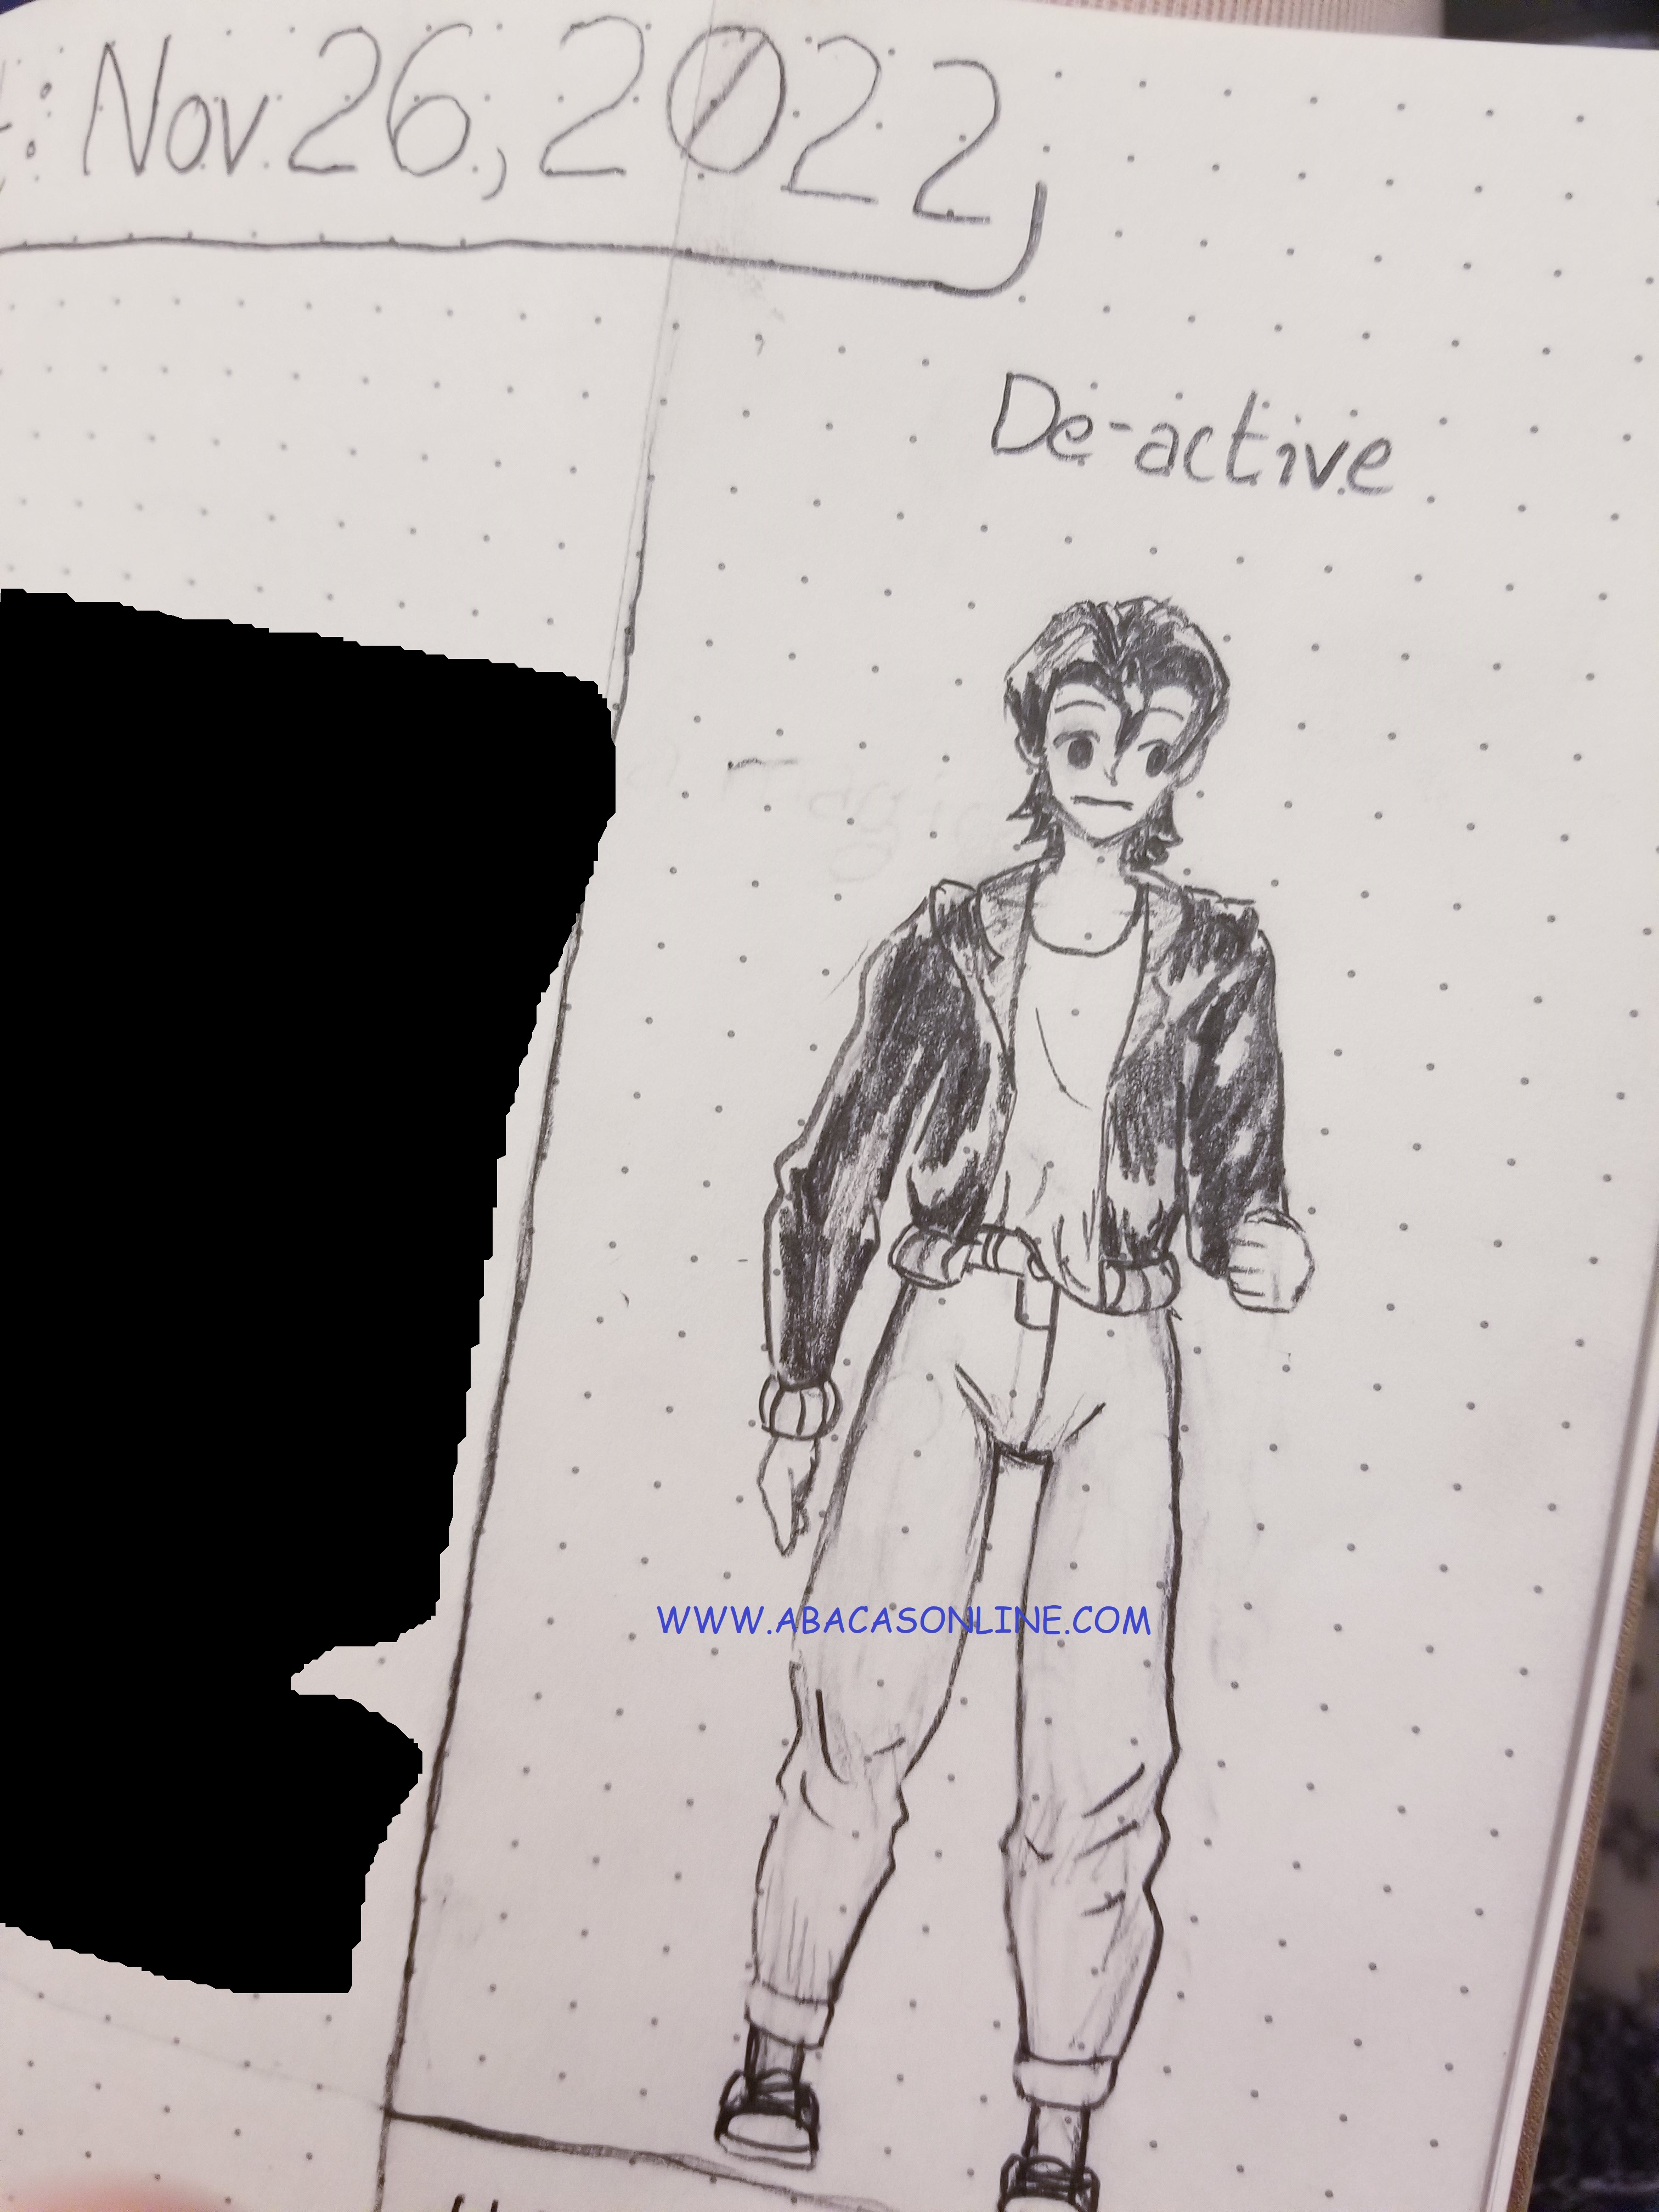 : Nov 26, 2022
De-active
WWW.ABACASONLINE.COM